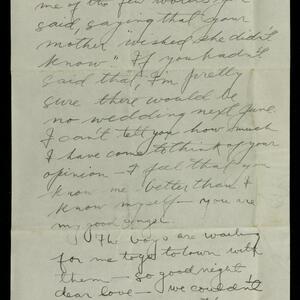 me of the few words you
said, saying that "your
mother wished she didn't
know." If you hadn't
said that, I'm pretty
sure there would be
no wedding next June.
I can't tell you how much
I have come to think of your
opinion — I feel that you
know me better than I
know myself — you are
my good angel.
The boys are waiting
for me to go to town with
them — so good night
dear love — we couldn't